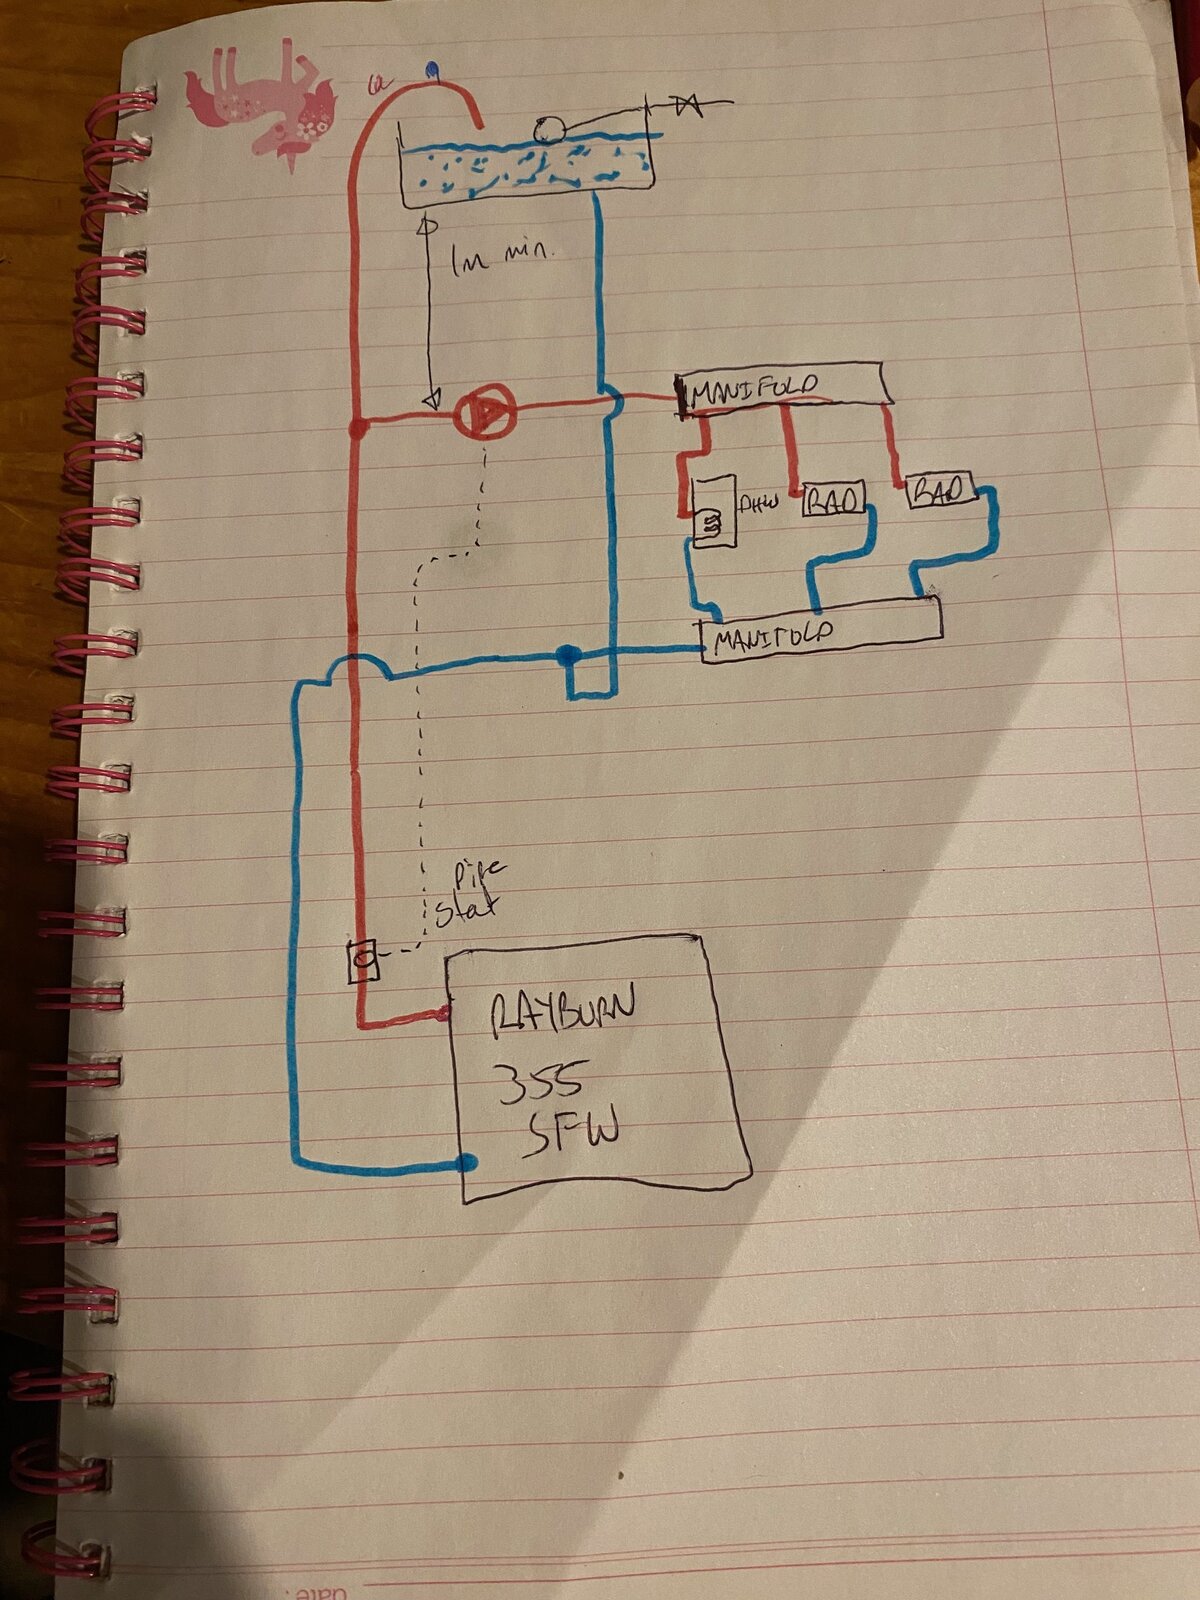 1m min.
MANIFOLD
DHW
RAD
RAD
MANIFOLD
Pipe
Stat
RAYBURN
355
SFW
date: